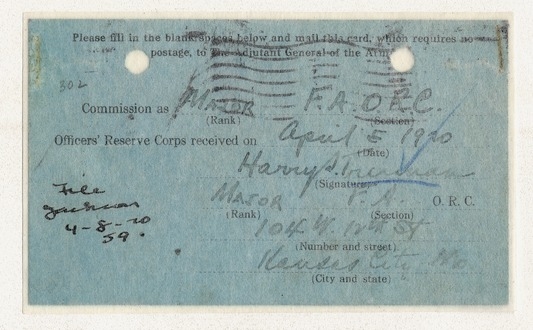 Please fill in the blank spaces below and mail this card, which requires no
postage, to The Adjutant General of the Army
302
Commission as Major F.A. O.R.C.
(Rank) (Section)
Officers' Reserve Corps received on April 5 1920
(Date)
Harry S. Truman
(Signature)
Major F.A. O. R. C.
(Rank) (Section)
104 W. 12th St
(Number and street)
Kansas City Mo
(City and state)
File
4-8-20
59